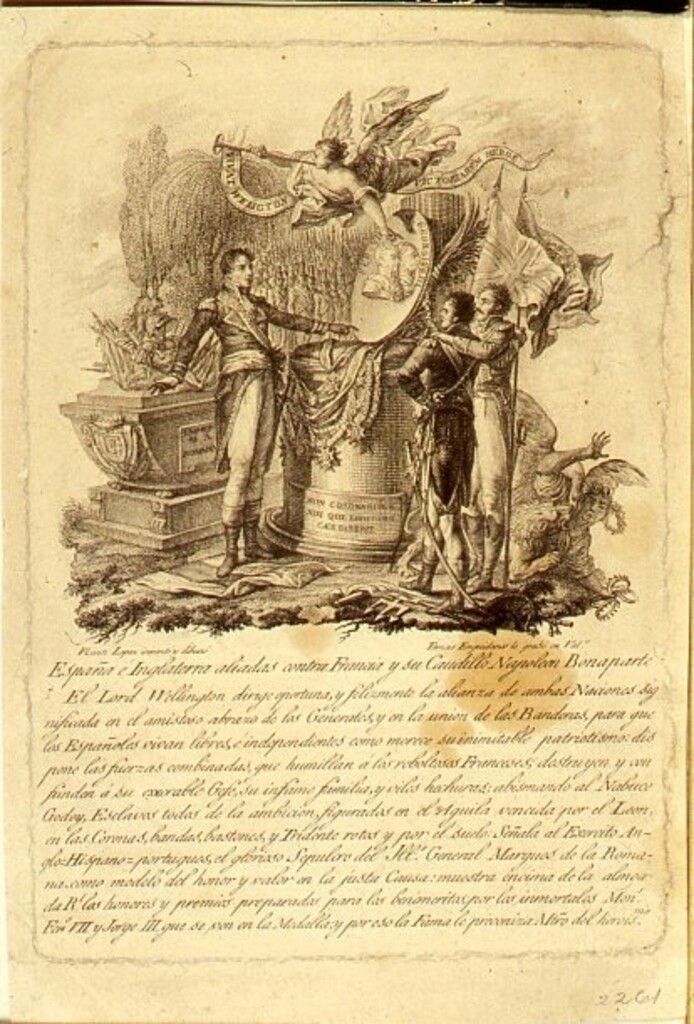 VIVAT WELLINGTON
VICTORIARUM HEROE
NON CORONABITUR
NISI QUI LEGITIME
CERTAVERIT
Vicente Lopez invento y dibuxó
Tomas Enguidanos lo grabó en Val.ª
España e Inglaterra aliadas contra Francia y su Caudillo Napoleon Bonaparte
El Lord Wellington dirige oportuna, y felizmente la alianza de ambas Naciones sig
nificada en el amistoso abrazo de los Generales, y en la union de las Banderas, para que
los Españoles vivan libres, e independientes como merece su inimitable patriotismo: dis
pone las fuerzas combinadas, que humillan a los reboltosos Franceses; destruyen y con
funden a su execrable Gefe, su infame familia, y viles hechuras; abismando al Nabuco
Godoy, Esclavos todos de la ambicion, figurados en el Aguila vencida por el Leon,
en las Coronas, bandas, bastones, y Tridente rotos y por el suelo. Señala al Exercito An-
glo-Hispano-portugues, el glorioso Sepulcro del General Marques de la Roma-
na, como modelo del honor y valor en la justa Causa: muestra encima de la almoa
da R.l los honores y premios preparados para los benemeritos, por los inmortales Mon.s
Fern. VII y Jorge III que se ven en la Medalla; y por eso la Fama le preconiza Mtro del herois.mo
2261